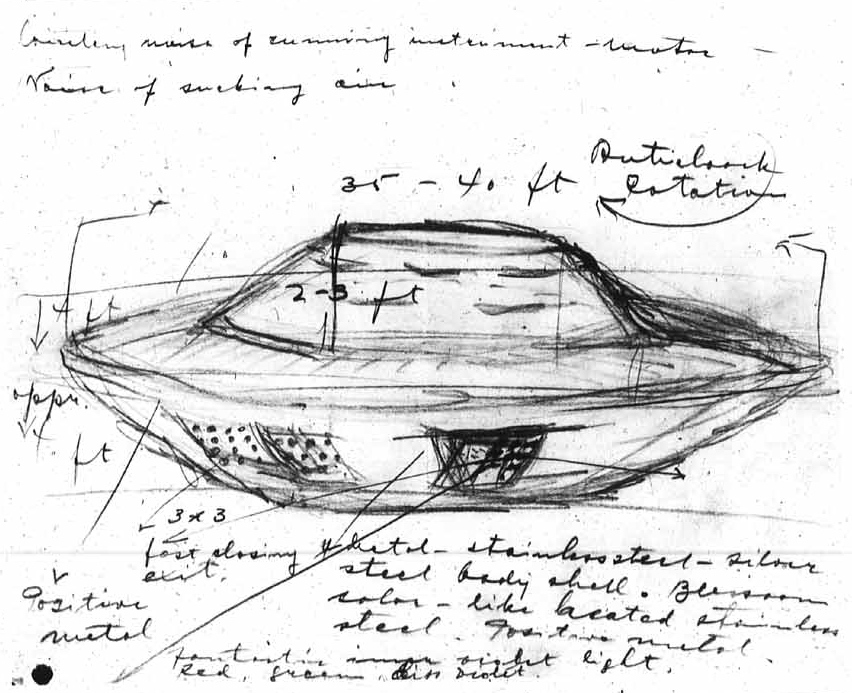 noise of running instrument - motor -
Noise of sucking air
Anticlock
rotation
35 - 40 ft
2-3 ft
4 ft
appr.
4 ft
3 x 3
fast closing
exit.
Positive
metal
Metal - stainless steel - silver
steel body shell.
color - like heated stainless
steel. Positive metal.
fantastic inner violet light.
Red, green, violet.